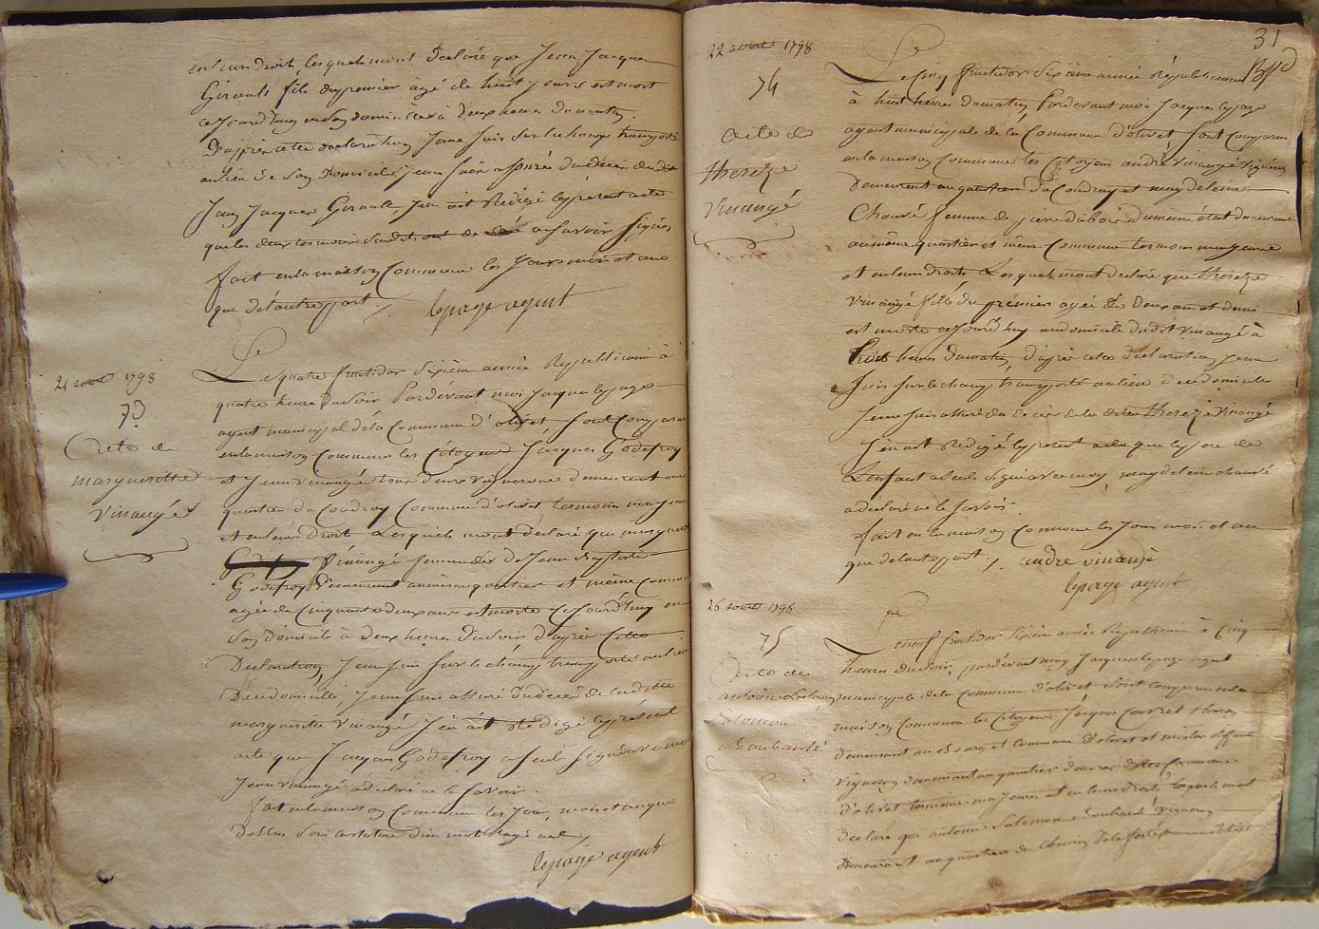 en leurs droits, lesquels m'ont déclaré que Jean Jacques
Girault fils du premier agé de huit jours est mort
cejourd'huy en son domicile à deux heures du matin.
D'après cette déclaration, Je me suis sur le champ transporté
au lieu de son domicile, je me suis assuré du décès dudit
Jean Jacques Girault, J'en ait rédigé le présent acte
que les deux témoins susdits ont de à savoir signé
fait en la maison Commune les Jour mois et an
que de l'autre part. lepage agent
21 aout 1798
73
Acte de
margueritte
vinangé
Le quatre fructidor sixième année Républicaine à
quatre heure du soir Pardevant moi Jacques lepage
agent municipal de la Commune d'olivet, sont comparus
en la maison Commune les Citoyens Jacques Godefroy
et Jean vinangé tous deux vignerons demeurant au
quartier du Coudray Commune d'olivet temoins majeurs
et en leurs droits Lesquels m'ont déclaré que marguerite
vinangé femme de Jean
Godefroy demeurant au même quartier et même Commune
agée de Cinquante deux ans est morte cejourd'huy en
son domicile à deux heures du soir, d'après cette
Déclaration, Je me suis sur le champ transporté au lieu
Dudit domicile, Je me suis assuré du décès de ladite
margueritte vinangé J'en ait rédigé le présent
acte que Jacques Godefroy a seul signé avec moi
Jean vinangé a déclaré ne le savoir.
fait en la maison Commune les Jour, mois et an que
Dessus un mot rayé nul
lepage agent
31
22 aout 1798
74
acte de
thereze
Vinangé
Le cinq fructidor Sixième année Républicaine
à huit heures du matin, Pardevant moi Jacques lepage
agent municipal de la Commune d'olivet, sont comparus
en la maison Commune les Citoyens andré vinangé vigneron
Demeurant au quartier du Coudray et magdeleine
Chauvé femme de pierre dubois demeurant
au même quartier et même Commune temoins majeurs
et en leurs droits Lesquels m'ont déclaré que thereze
vinangé fille du premier agée de Deux ans et demi
est morte cejourd'huy au domicile dudit vinangé à
heures du matin, d'après cette Déclaration, Je me
suis sur le champ transporté au lieu dudit domicile
Je me suis assuré du Décès de la dite thereze vinangé
J'en ait rédigé le présent acte que le père de
L'enfant a seul signé avec moy, magdeleine chauvé
a déclaré ne le savoir.
fait en la maison Commune les Jour mois et an
que de l'autre part. andre vinangé
lepage agent
26 aout 1798
75
Acte de
antoine
Salomon
Le neuf fructidor sixième année Républicaine à Cinq
heures du soir, pardevant moy Jacques lepage agent
municipal de la Commune d'olivet sont comparus en la
maison Commune les Citoyens Jacques
demeurant au et Commune D'olivet et
vigneron demeurant au quartier Commune
d'olivet témoins majeurs et en leurs droits, lesquels m'ont
déclaré que antoine Salomon vigneron
demeurant au quartier de